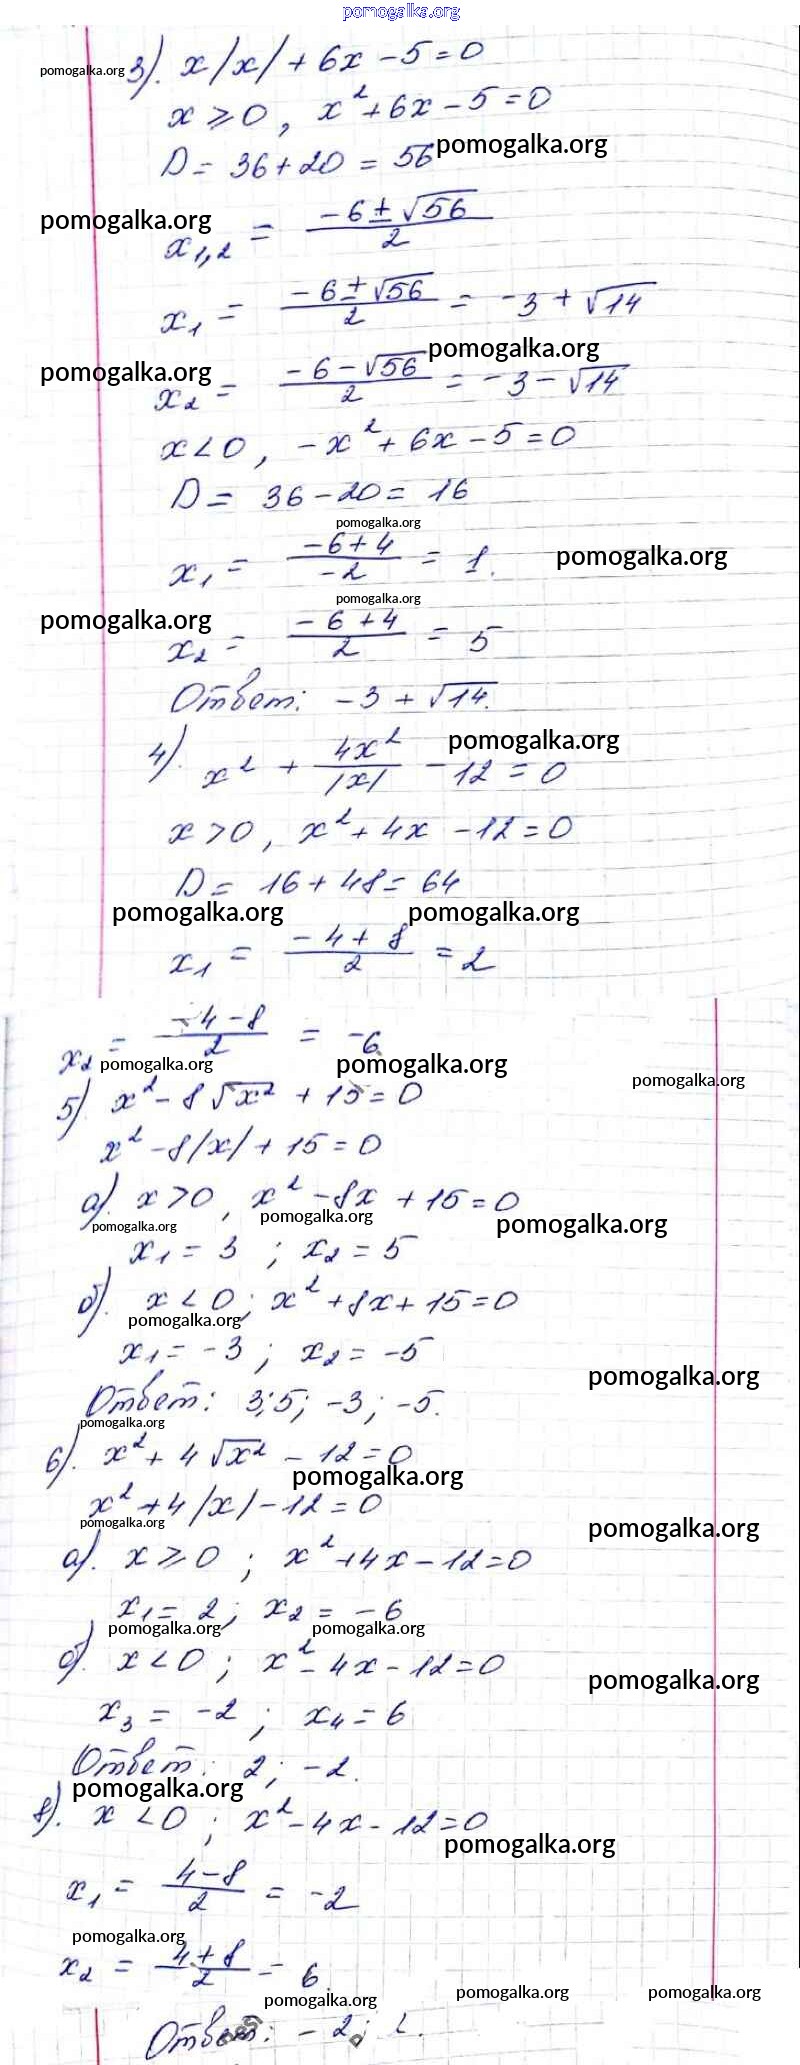 pomogalka.org
3). x|x| + 6x - 5 = 0
pomogalka.org
x ⩾ 0, x² + 6x - 5 = 0
D = 36 + 20 = 56
pomogalka.org
pomogalka.org
x₁,₂ = (-6 ± √56)/2
x₁ = (-6 ± √56)/2 = -3 + √14
pomogalka.org
pomogalka.org
x₂ = (-6 - √56)/2 = -3 - √14
x < 0, -x² + 6x - 5 = 0
D = 36 - 20 = 16
pomogalka.org
x₁ = (-6 + 4)/-2 = 1.
pomogalka.org
pomogalka.org
pomogalka.org
x₂ = (-6 + 4)/2 = 5
Ответ: -3 + √14.
pomogalka.org
4). x² + 4x²/|x| - 12 = 0
x > 0, x² + 4x - 12 = 0
D = 16 + 48 = 64
pomogalka.org pomogalka.org
x₁ = (-4 + 8)/2 = 2
x₂ = (-4 - 8)/2 = -6
pomogalka.org pomogalka.org
pomogalka.org
5) x² - 8√x² + 15 = 0
x² - 8|x| + 15 = 0
а). x > 0, x² - 8x + 15 = 0
pomogalka.org pomogalka.org pomogalka.org
x₁ = 3 ; x₂ = 5
б). x < 0; x² + 8x + 15 = 0
pomogalka.org
x₁ = -3 ; x₂ = -5
pomogalka.org
Ответ: 3; 5; -3; -5.
pomogalka.org
6). x² + 4√x² - 12 = 0
pomogalka.org
x² + 4|x| - 12 = 0
pomogalka.org pomogalka.org
а). x ⩾ 0 ; x² + 4x - 12 = 0
x₁ = 2 ; x₂ = -6
pomogalka.org pomogalka.org
б). x < 0 ; x² - 4x - 12 = 0
pomogalka.org
x₃ = -2 ; x₄ = 6
Ответ: 2; -2.
pomogalka.org
8). x < 0 ; x² - 4x - 12 = 0
pomogalka.org
x₁ = (4 - 8)/2 = -2
pomogalka.org
x₂ = (4 + 8)/2 = 6.
pomogalka.org pomogalka.org pomogalka.org
Ответ: -2; 2.